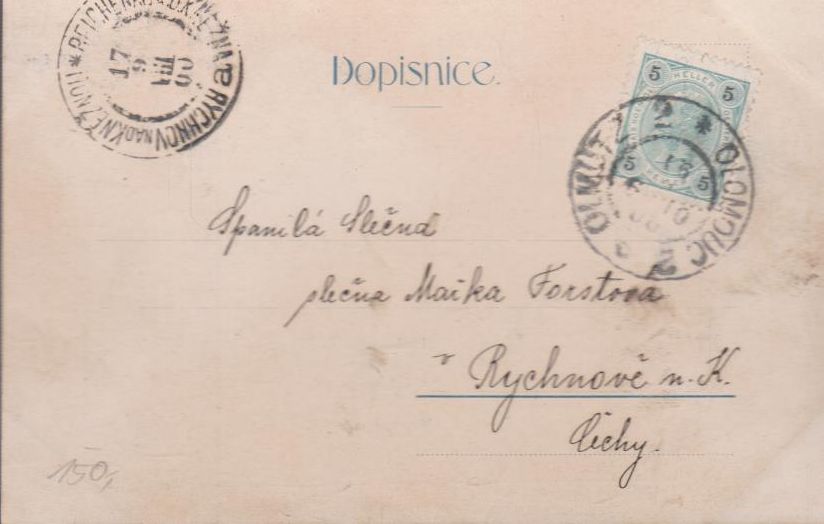 REICHENAU A.D. KNĚŽNA a RYCHNOV NAD KNĚŽNOU *
17
9
VIII
00
Dopisnice.
5 HELLER 5
5 5
OLMÜTZ 2 * OLOMOUC 2
Spanilá Slečna
slečna Mařka Forstova
v Rychnově n. K.
Čechy.
150,